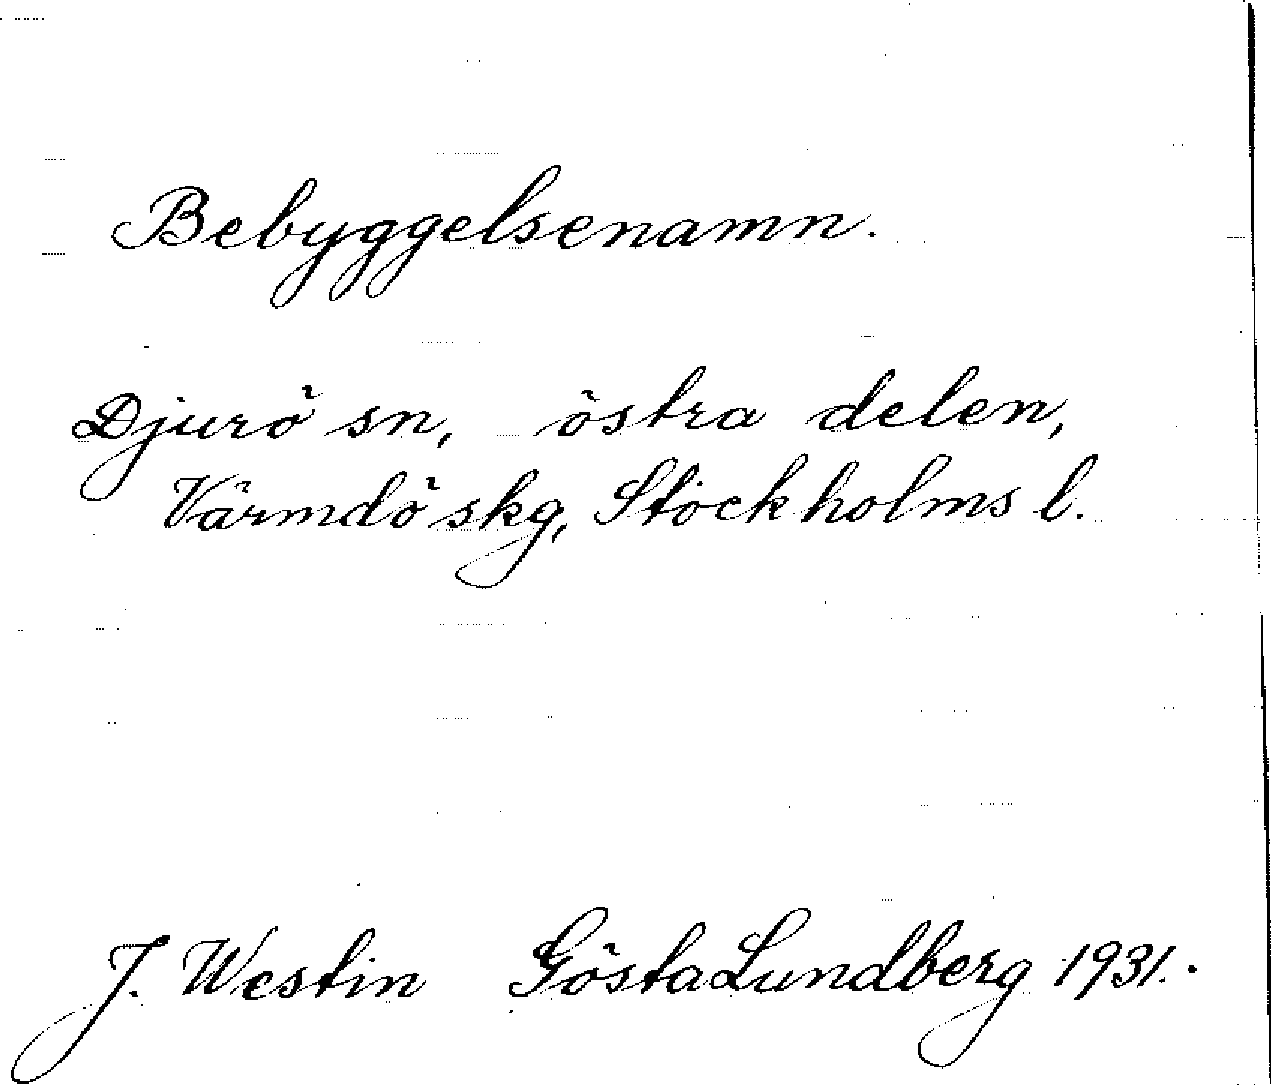 Bebyggelsenamn.
Djurö sn, östra delen,
Värmdö skg, Stockholms l.
J. Westin Gösta Lundberg 1931.